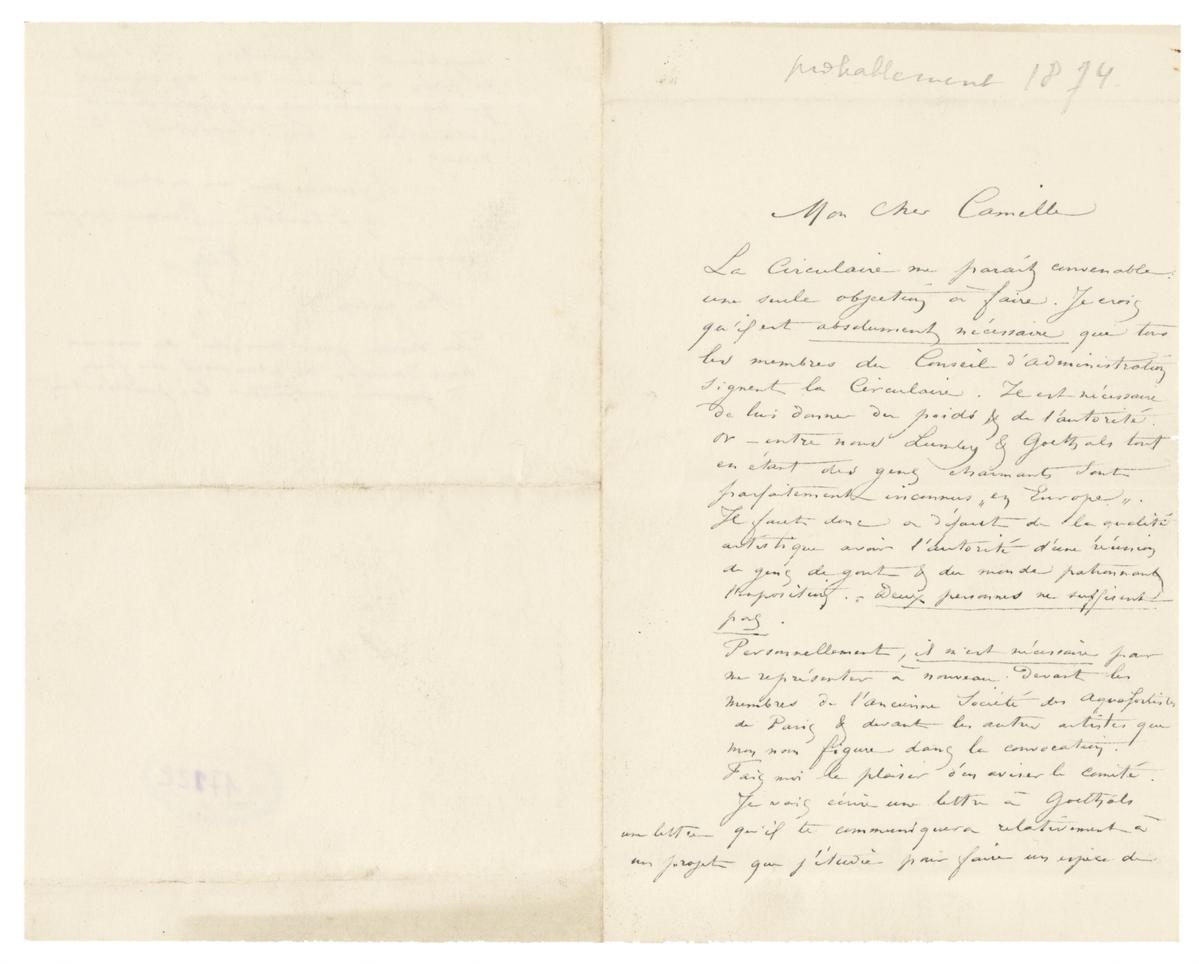 probablement 1874
Mon cher Camille
La Circulaire me parait convenable.
une seule objection à faire. Je crois
qu'il est absolument nécessaire que tous
les membres du Conseil d'administration
signent la Circulaire. Il est nécessaire
de lui donner du poids & de l'autorité.
or – entre nous & Goethals tout
en étant des gens charmants sont
parfaitement inconnus „en Europe".
Il faut donc a défaut de la qualité
artistique avoir l'autorité d'une réunion
de gens de gout & du monde patronnant
l'exposition. – Deux personnes ne suffisent
pas.
Personnellement, il m'est nécessaire pour
me représenter à nouveau devant les
membres de l'ancienne Société des Aquafortistes
de Paris & devant les autres artistes que
mon nom figure dans la convocation.
Fais moi le plaisir d'en aviser le comité.
Je vais écrire une lettre à Goethals
une lettre qu'il te communiquera relativement à
un projet que j'étudie pour faire un espèce de